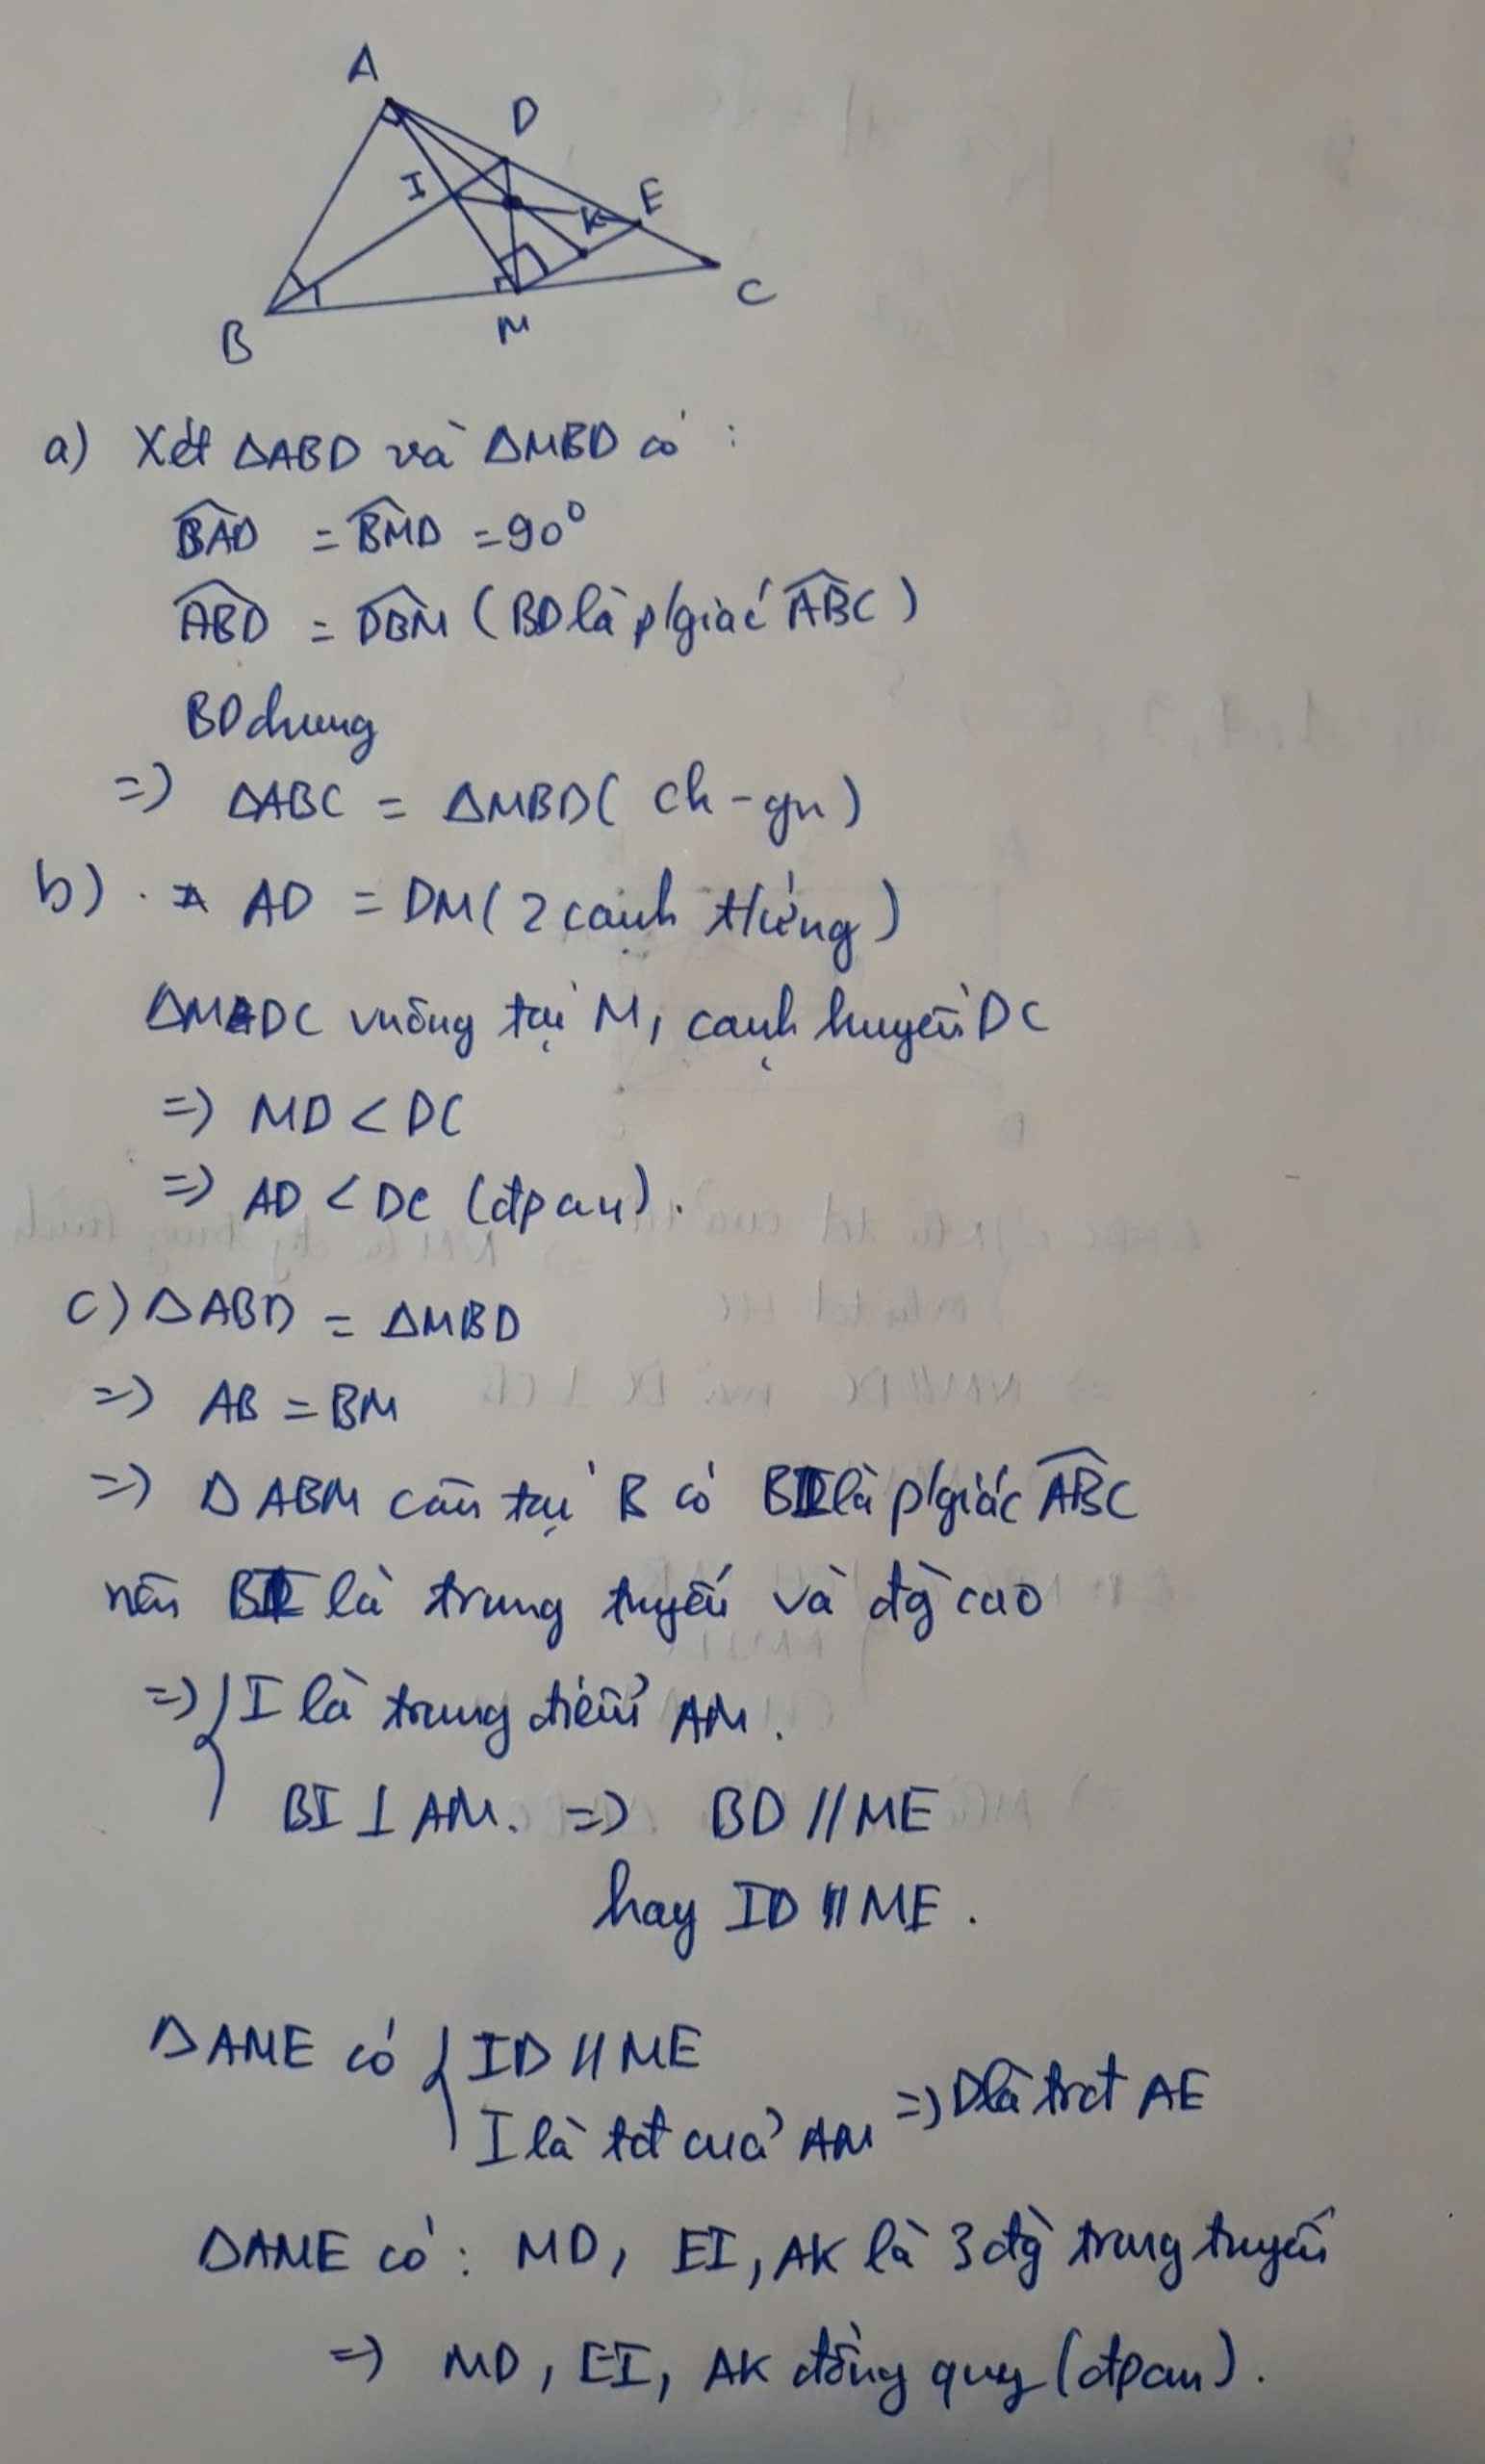 A
D
I
K
E
C
B
M
a) Xét ΔABD và ΔMBD có :
BAD = BMD = 90°
ABD = DBM ( BD là p/giác ABC )
BD chung
=> ΔABC = ΔMBD ( ch - gn )
b) . AD = DM ( 2 cạnh t/ứng )
ΔMDC vuông tại M, cạnh huyền DC
=> MD < DC
=> AD < DC (đpcm).
c) ΔABD = ΔMBD
=> AB = BM
=> Δ ABM cân tại B có BI là p/giác ABC
nên BI là trung tuyến và đg cao
=> { I là trung điểm AM.
BI ⊥ AM. => BD // ME
hay ID // ME .
ΔAME có { ID // ME
I là tđ của AM => D là trđ AE
ΔAME có : MD, EI, AK là 3 đg trung tuyến
=> MD, EI, AK đồng quy (đpcm).